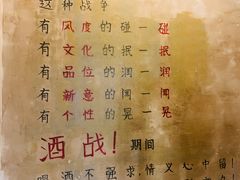 这种战争
有风度的碰一碰
有文化的抿一抿
有品位的润一润
有新意的闻一闻
有个性的晃一晃
酒战！期间
喝酒不强求情义心中留！